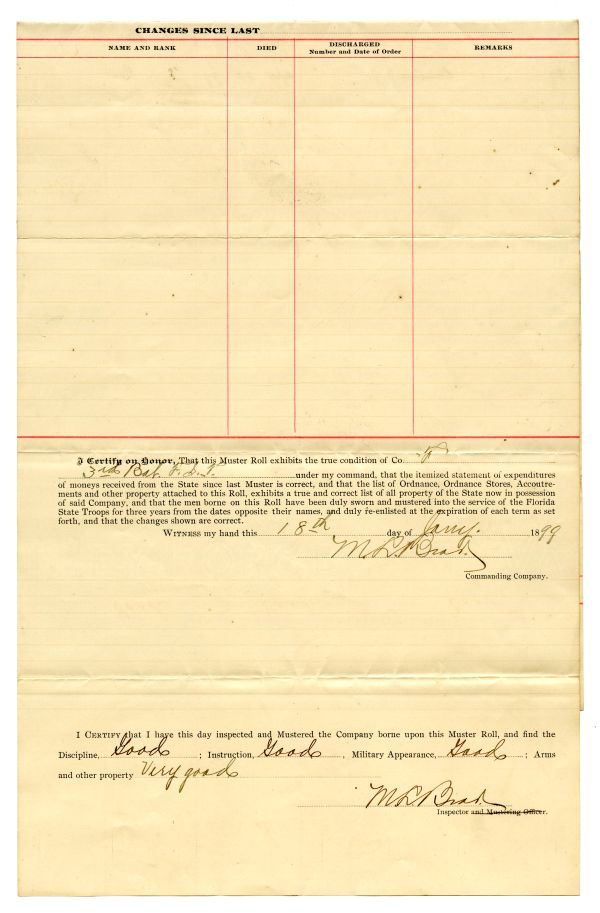 CHANGES SINCE LAST
NAME AND RANK DIED DISCHARGED REMARKS
Number and Date of Order
I Certify on Honor, That this Muster Roll exhibits the true condition of Co.
3rd Bat. F. S. T. under my command, that the itemized statement of expenditures
of moneys received from the State since last Muster is correct, and that the list of Ordnance, Ordnance Stores, Accoutre-
ments and other property attached to this Roll, exhibits a true and correct list of all property of the State now in possession
of said Company, and that the men borne on this Roll have been duly sworn and mustered into the service of the Florida
State Troops for three years from the dates opposite their names, and duly re-enlisted at the expiration of each term as set
forth, and that the changes shown are correct.
WITNESS my hand this 18th day of Jany. 1899
M. L.
Commanding Company.
I CERTIFY that I have this day inspected and Mustered the Company borne upon this Muster Roll, and find the
Discipline, Good ; Instruction, Good , Military Appearance, Good ; Arms
and other property Very good
M L
Inspector and Mustering Officer.